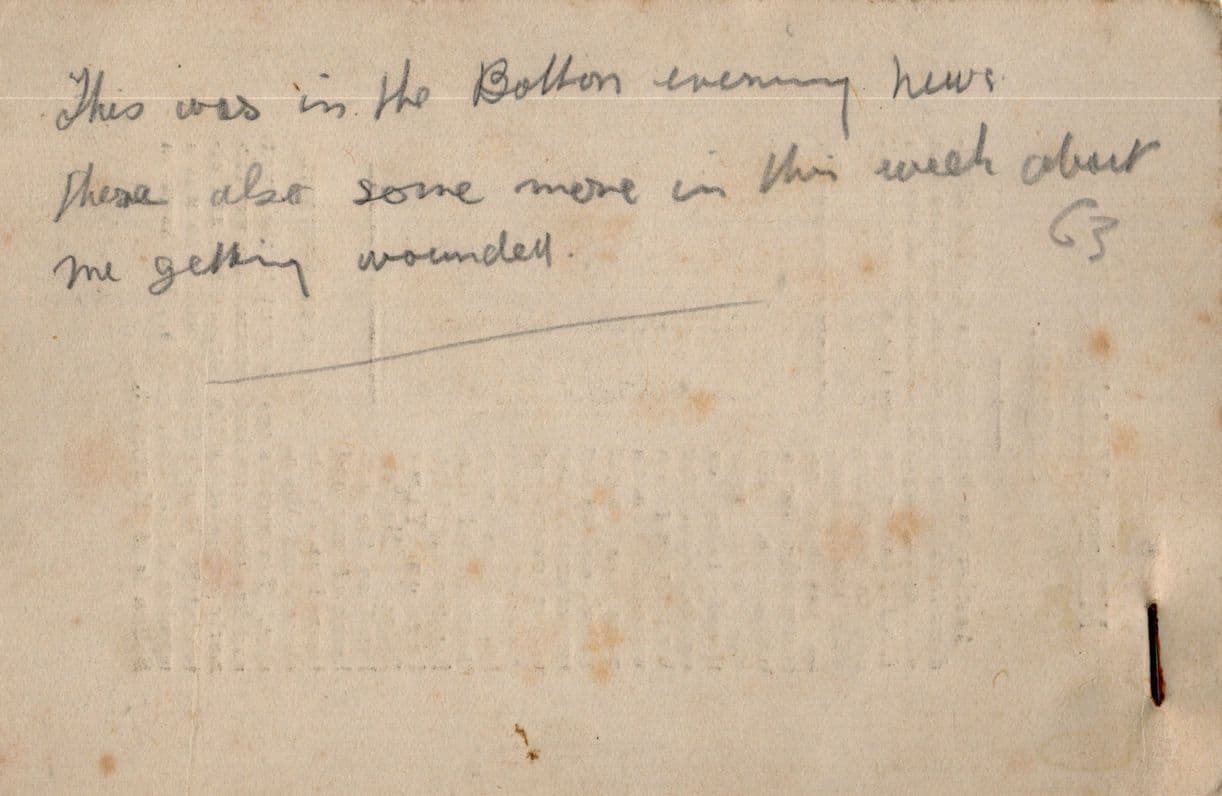 This was in the Bolton evening news.
There also some more in this week about
me getting wounded.
63